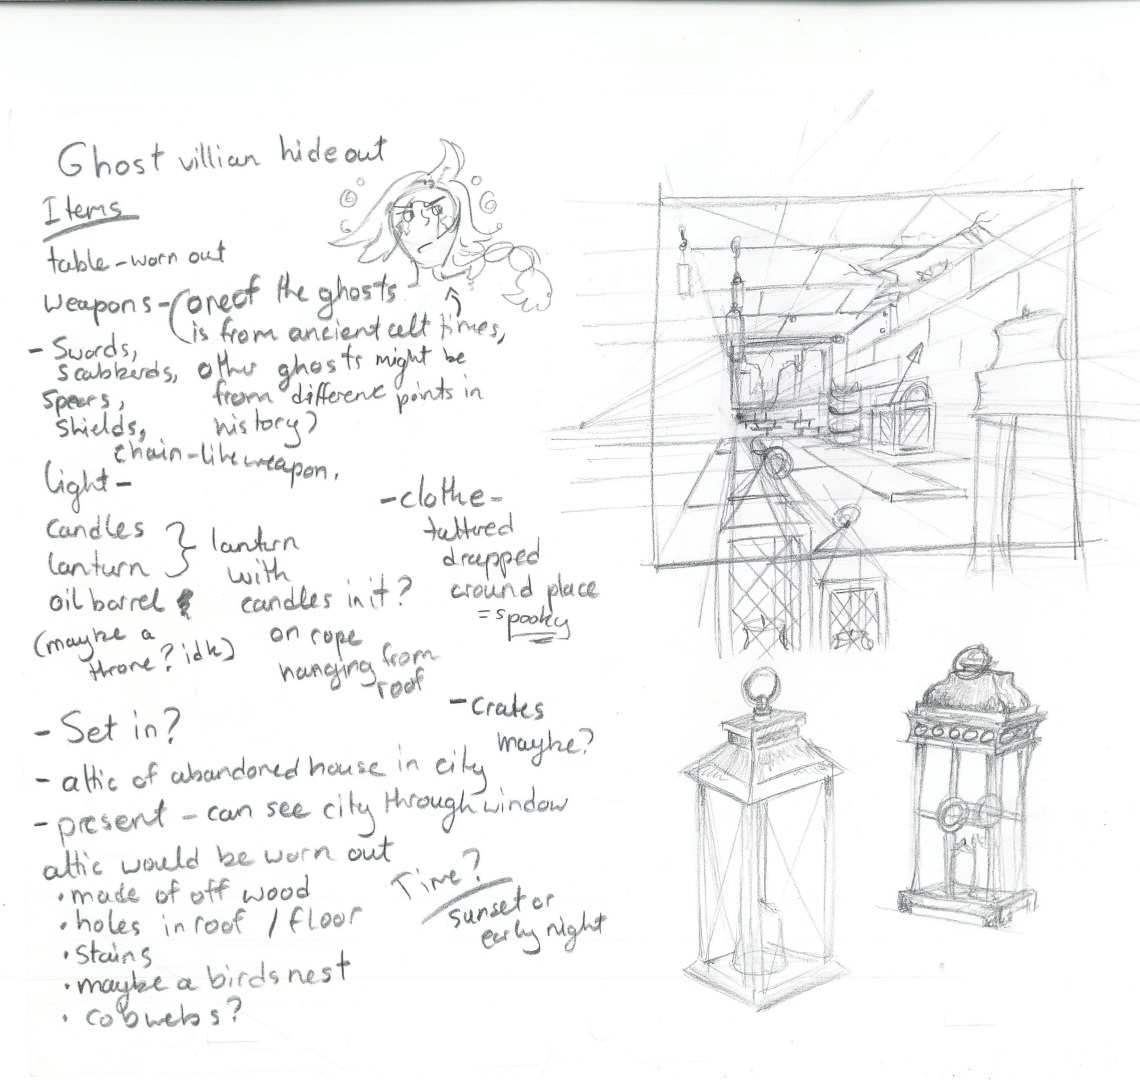 Ghost villian hideout
Items
table - worn out
weapons - (one of the ghosts
is from ancient celt times,
other ghosts might be
from different points in
history)
- Swords,
scabberds,
Spears,
Shields,
chain-like weapon.
Light -
candles
lanturn
oil barrel
(maybe a
throne? idk)
lanturn
with
candles in it?
on rope
hanging from
roof
- clothe -
tattered
drapped
around place
= spooky
- Crates
maybe?
- Set in?
- attic of abandoned house in city
- present - can see city through window
attic would be worn out
• made of off wood
• holes in roof / floor
• stains
• maybe a birds nest
• cobwebs?
Time?
sunset or
early night